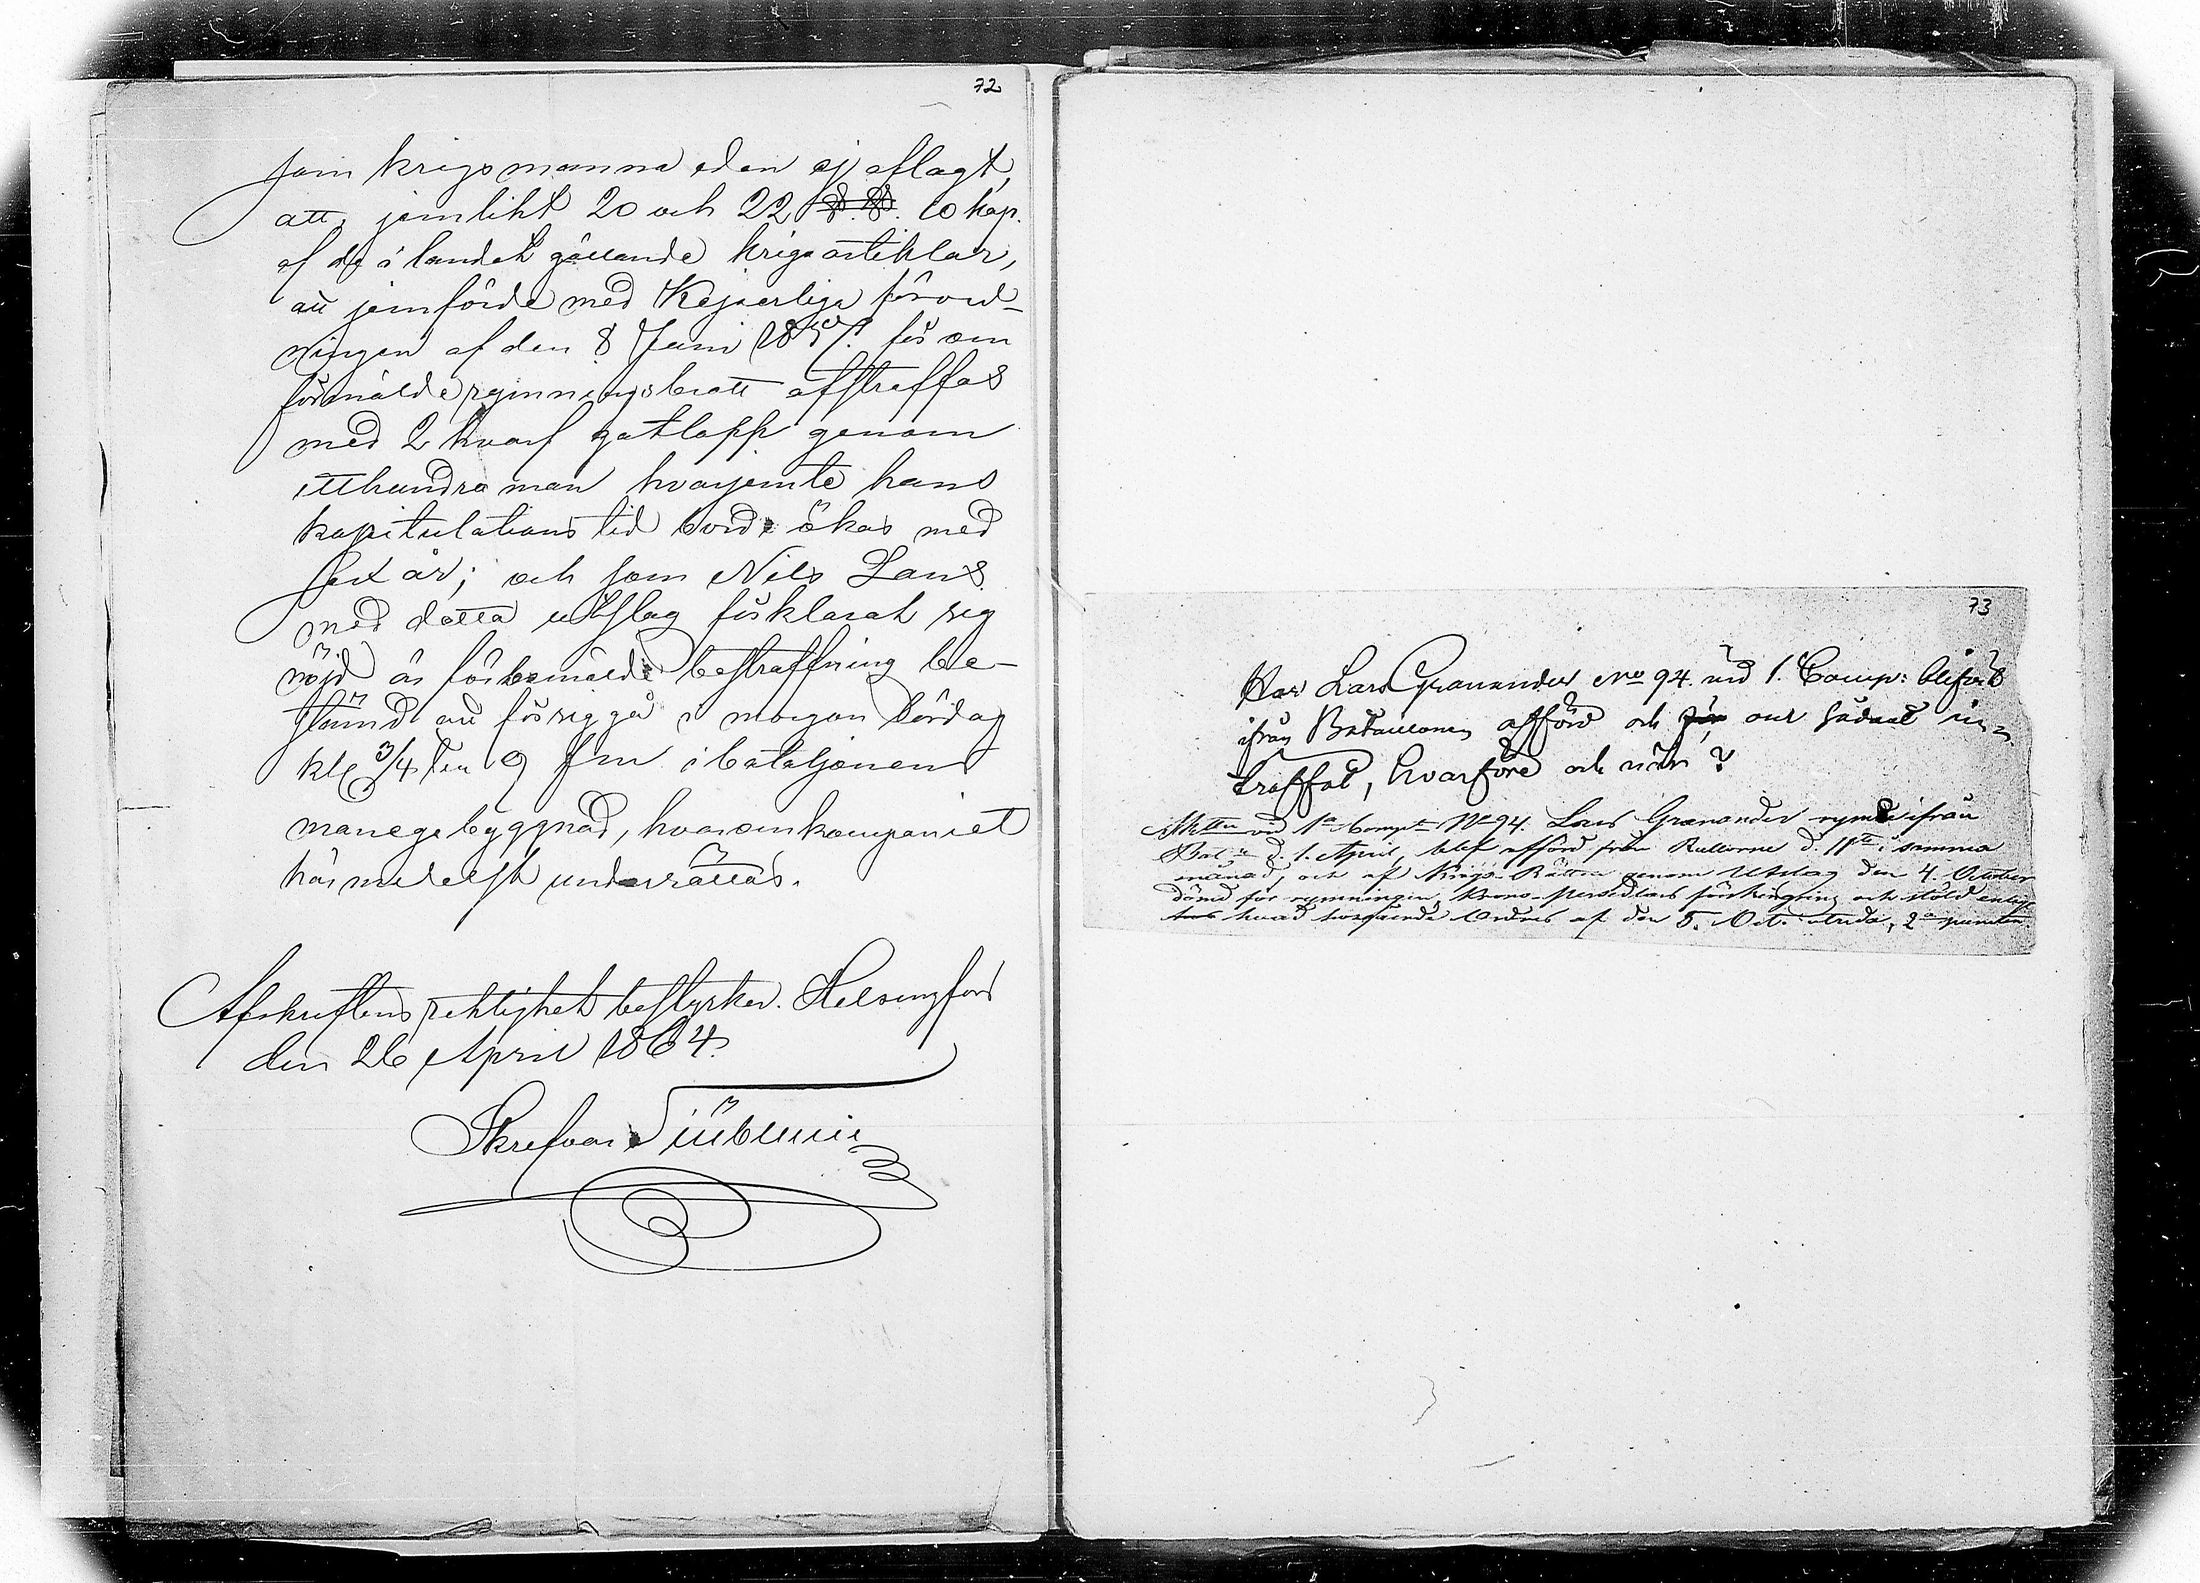 72
som krigsmanna eden ej aflagt,
att, jemlikt 20 och 22 §.§. 10 kap.
af de i landet gällande krigsartiklar,
att jemförde med Kejserliga förord-
ningen af den 8 Juni 1857. för om
förmälde rymningsbrott afstraffas
med 2 hvarf gatlopp genom
etthundra man hvarjemte hans
kapitulations tid borde ökas med
sex år; och som Nils Lans
med detta utslag förklarat sig
nöjd är förbemälde bestraffning be-
stämd att försiggå i morgon Lördag
kl 3/4 till 9 f m i bataljonens
manegebyggnad, hvarom kompaniet
härmedelst underrättas.
Afskriftens riktighet bestyrker. Helsingfors
den 26 April 1864.
Skrefvare
73
Har Lars Granander No 94. vid 1. Comp: blifvit
ifrån Bataillonen afförd och när, om sådant in-
träffat, hvarföre och när?
vid 1a Compt No 94. Lars Granander rymde ifrån
Bat: d. 1. April, blef afförd från Rullorne d. 11te i samma
månad, och af Krigs-Rätten genom Utslag den 4. October
dömd för rymningen, Krono-persedlars förskingring och stöld enligt
hvad Ordres af den 5. Oct. utvisa, 2a punkten.